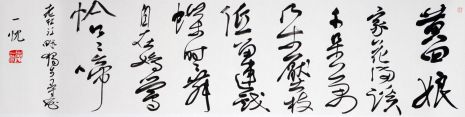 黄四娘
家花满蹊
千朵万
朵压枝
低留连戏
蝶时时舞
自在娇莺
恰恰啼
一忱